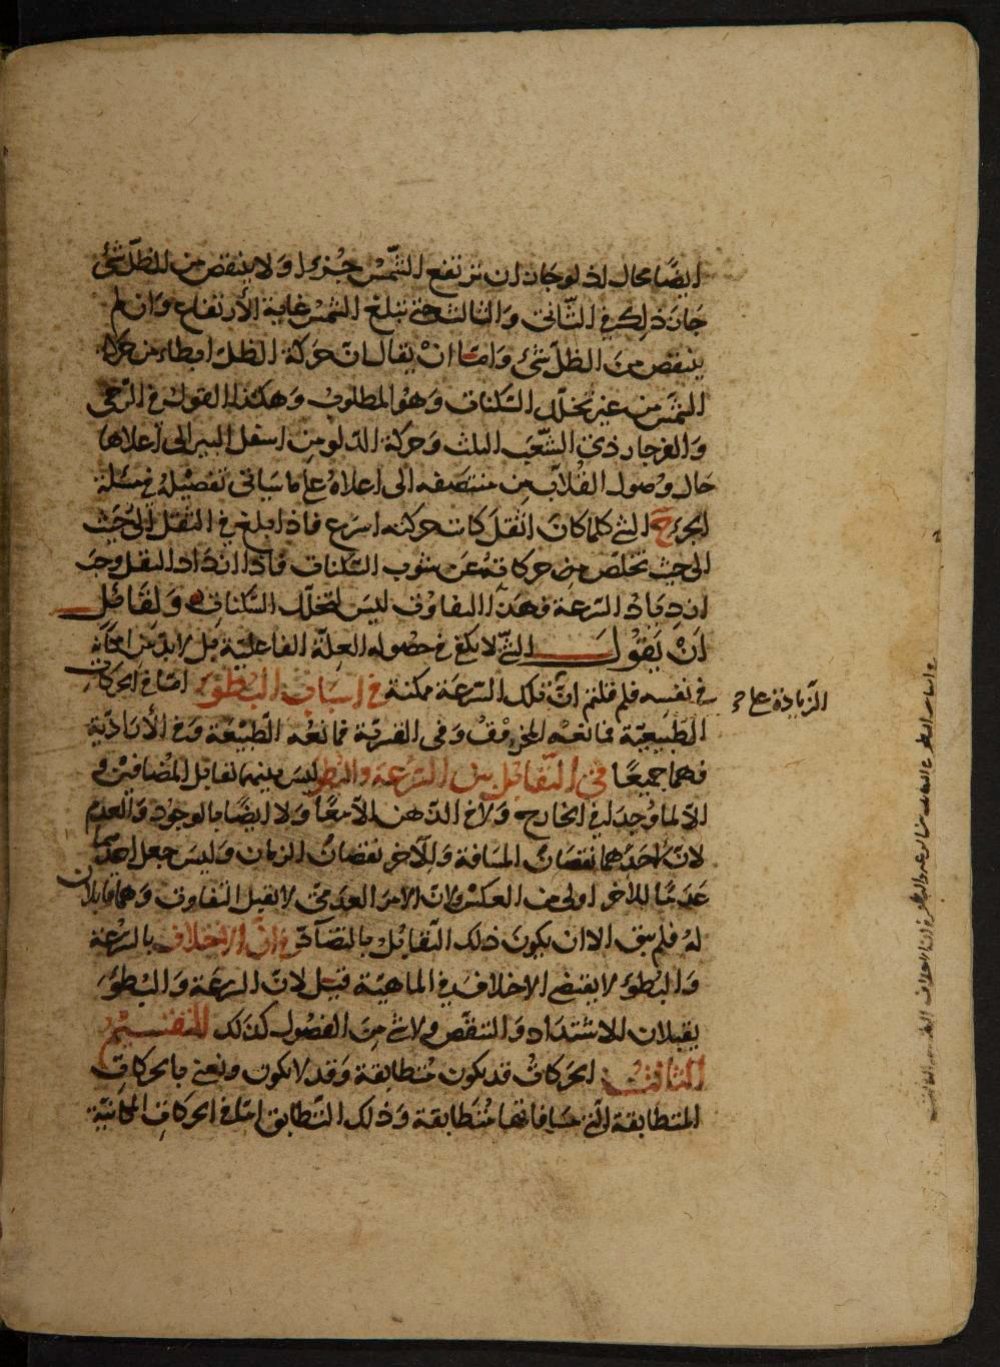 ايضًا محال اذ لو جاز ان ترتفع الشّمس جُزءا وَلا ينتقص من الظلّ شئ
جازَ ذلك في الثّانى وَالثالث حتى تبلغ الشمسُ غاية الأرتفاع وَان لم
ينتقص منَ الظلّ شئ وَامّا انْ يقال انّ حرَكة الظلّ ابطاء من حركة
الشمس من غير تخلّل السّكنات وَهوُ المطلوب وَهكذا القول في الرّحى
وَالفرجار ذي الشّعَب الثلث وَحركة الدّلو من اسفل البير الى اعلاها
حال وُصول القُلاّب من منتصَفه الى اعلاهُ على ما سَيأتى تفصيْلهُ في مسئلة
الجزء حَ الشئ كلما كانَ اثقلَ كانت حركته اسرَع فاذا بلغ في الثقل الىٰ حَيث
الى حيث تخلّص من حركاتهُ عَن شوب السّكنات فاذا ازدَاد الثقل وجبَ
ازديَادُ السّرعَة فهذَا التفاوُت ليسَ لتخلّل السّكنات وَلقَائل
اَنْ يَقوُلَ الشئ لا يكفي في حصُوله العِلّة الفاعليّة بل لا بدّ من امكانه
في نفسه فلم قلتم انّ تلك السّرعَة ممكنة في اسبَاب البُطوُء امّا في الحركات
الزّيادة على
الطبَيعيّة فمانعَة المخروُقْ وَفي القسريّة ممانعَة الطّبيْعَة وَفي الأرَاديّة
فهما جميعًا في التقابُل بين السّرعَة وَالبُطوء ليسَ بينهما تقابل المُضافين و
الاّ لما وُجدَا في الخارج وَلا في الذّهن الاّ معًا وَلا ايضًا بالوجود وَالعدم
لانّ احَدَهما نقصَانُ المسَافة وَللآخر نقصَانُ الزمان وَليسَ جعل احدهما
عَدَمًا للآخر اولى من العكسْ وَلانّ الامرَ العدَميّ لا يقبل التفاوت وَهما قابلان
لهُ فلم يبق الا ان يكونَ ذلك التّقابُل بالتضآدّ في انّ الاختلاف بالسّرْعة
وَالبُطوُء لا يقتضي الاختلاف في الماهيّة قيل لانّ السّرعَة وَالبُطوُءَ
يقبلان للاشتدَاد وَالتنقّص ولا شئ منَ الفصُول كذَلك التقسيْمُ
الثانى الحرَكاتُ قد يكون مُتطابقة وَقد لا يكون ونعني بالحركات
المتطابقة الّتي مسَافاتها مُتطَابقة وَذلك التّطابق امّا في الحرَكات المكانيّة